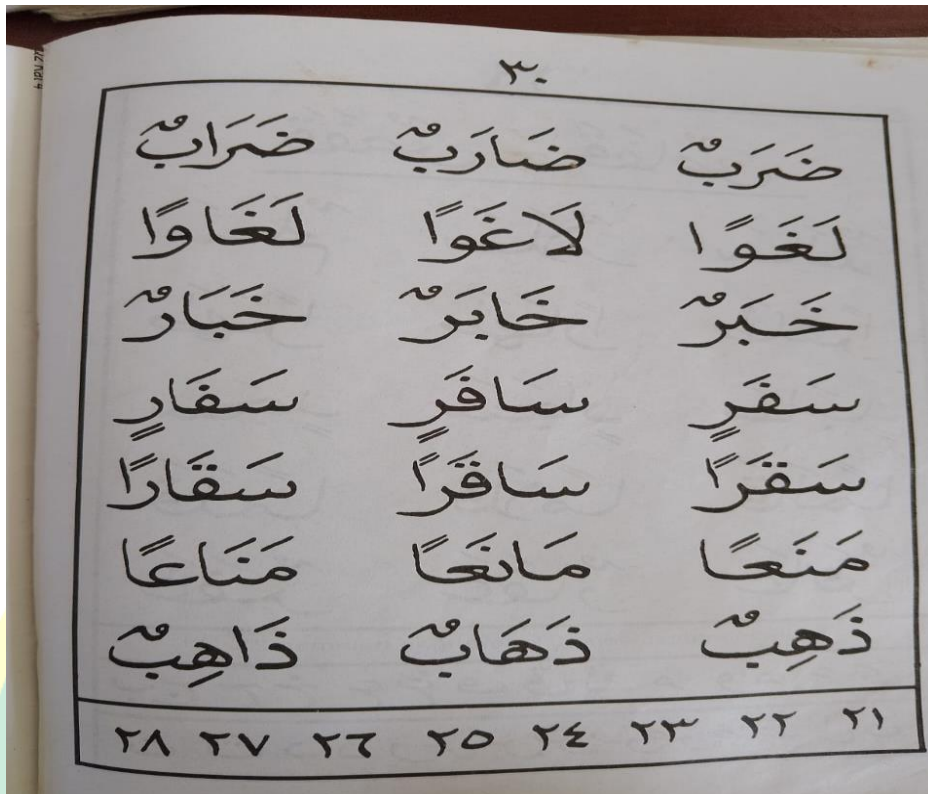 ٣٠
ضَرَبٌ ضَارَبٌ ضَرَابٌ
لَغَوًا لَاغَوًا لَغَاوًا
خَبَرٌ خَابَرٌ خَبَارٌ
سَفَرٍ سَافَرٍ سَفَارٍ
سَقَرًا سَاقَرًا سَقَارًا
مَنَعًا مَانَعًا مَنَاعًا
ذَهِبٌ ذَهَابٌ ذَاهِبٌ
٢١ ٢٢ ٢٣ ٢٤ ٢٥ ٢٦ ٢٧ ٢٨